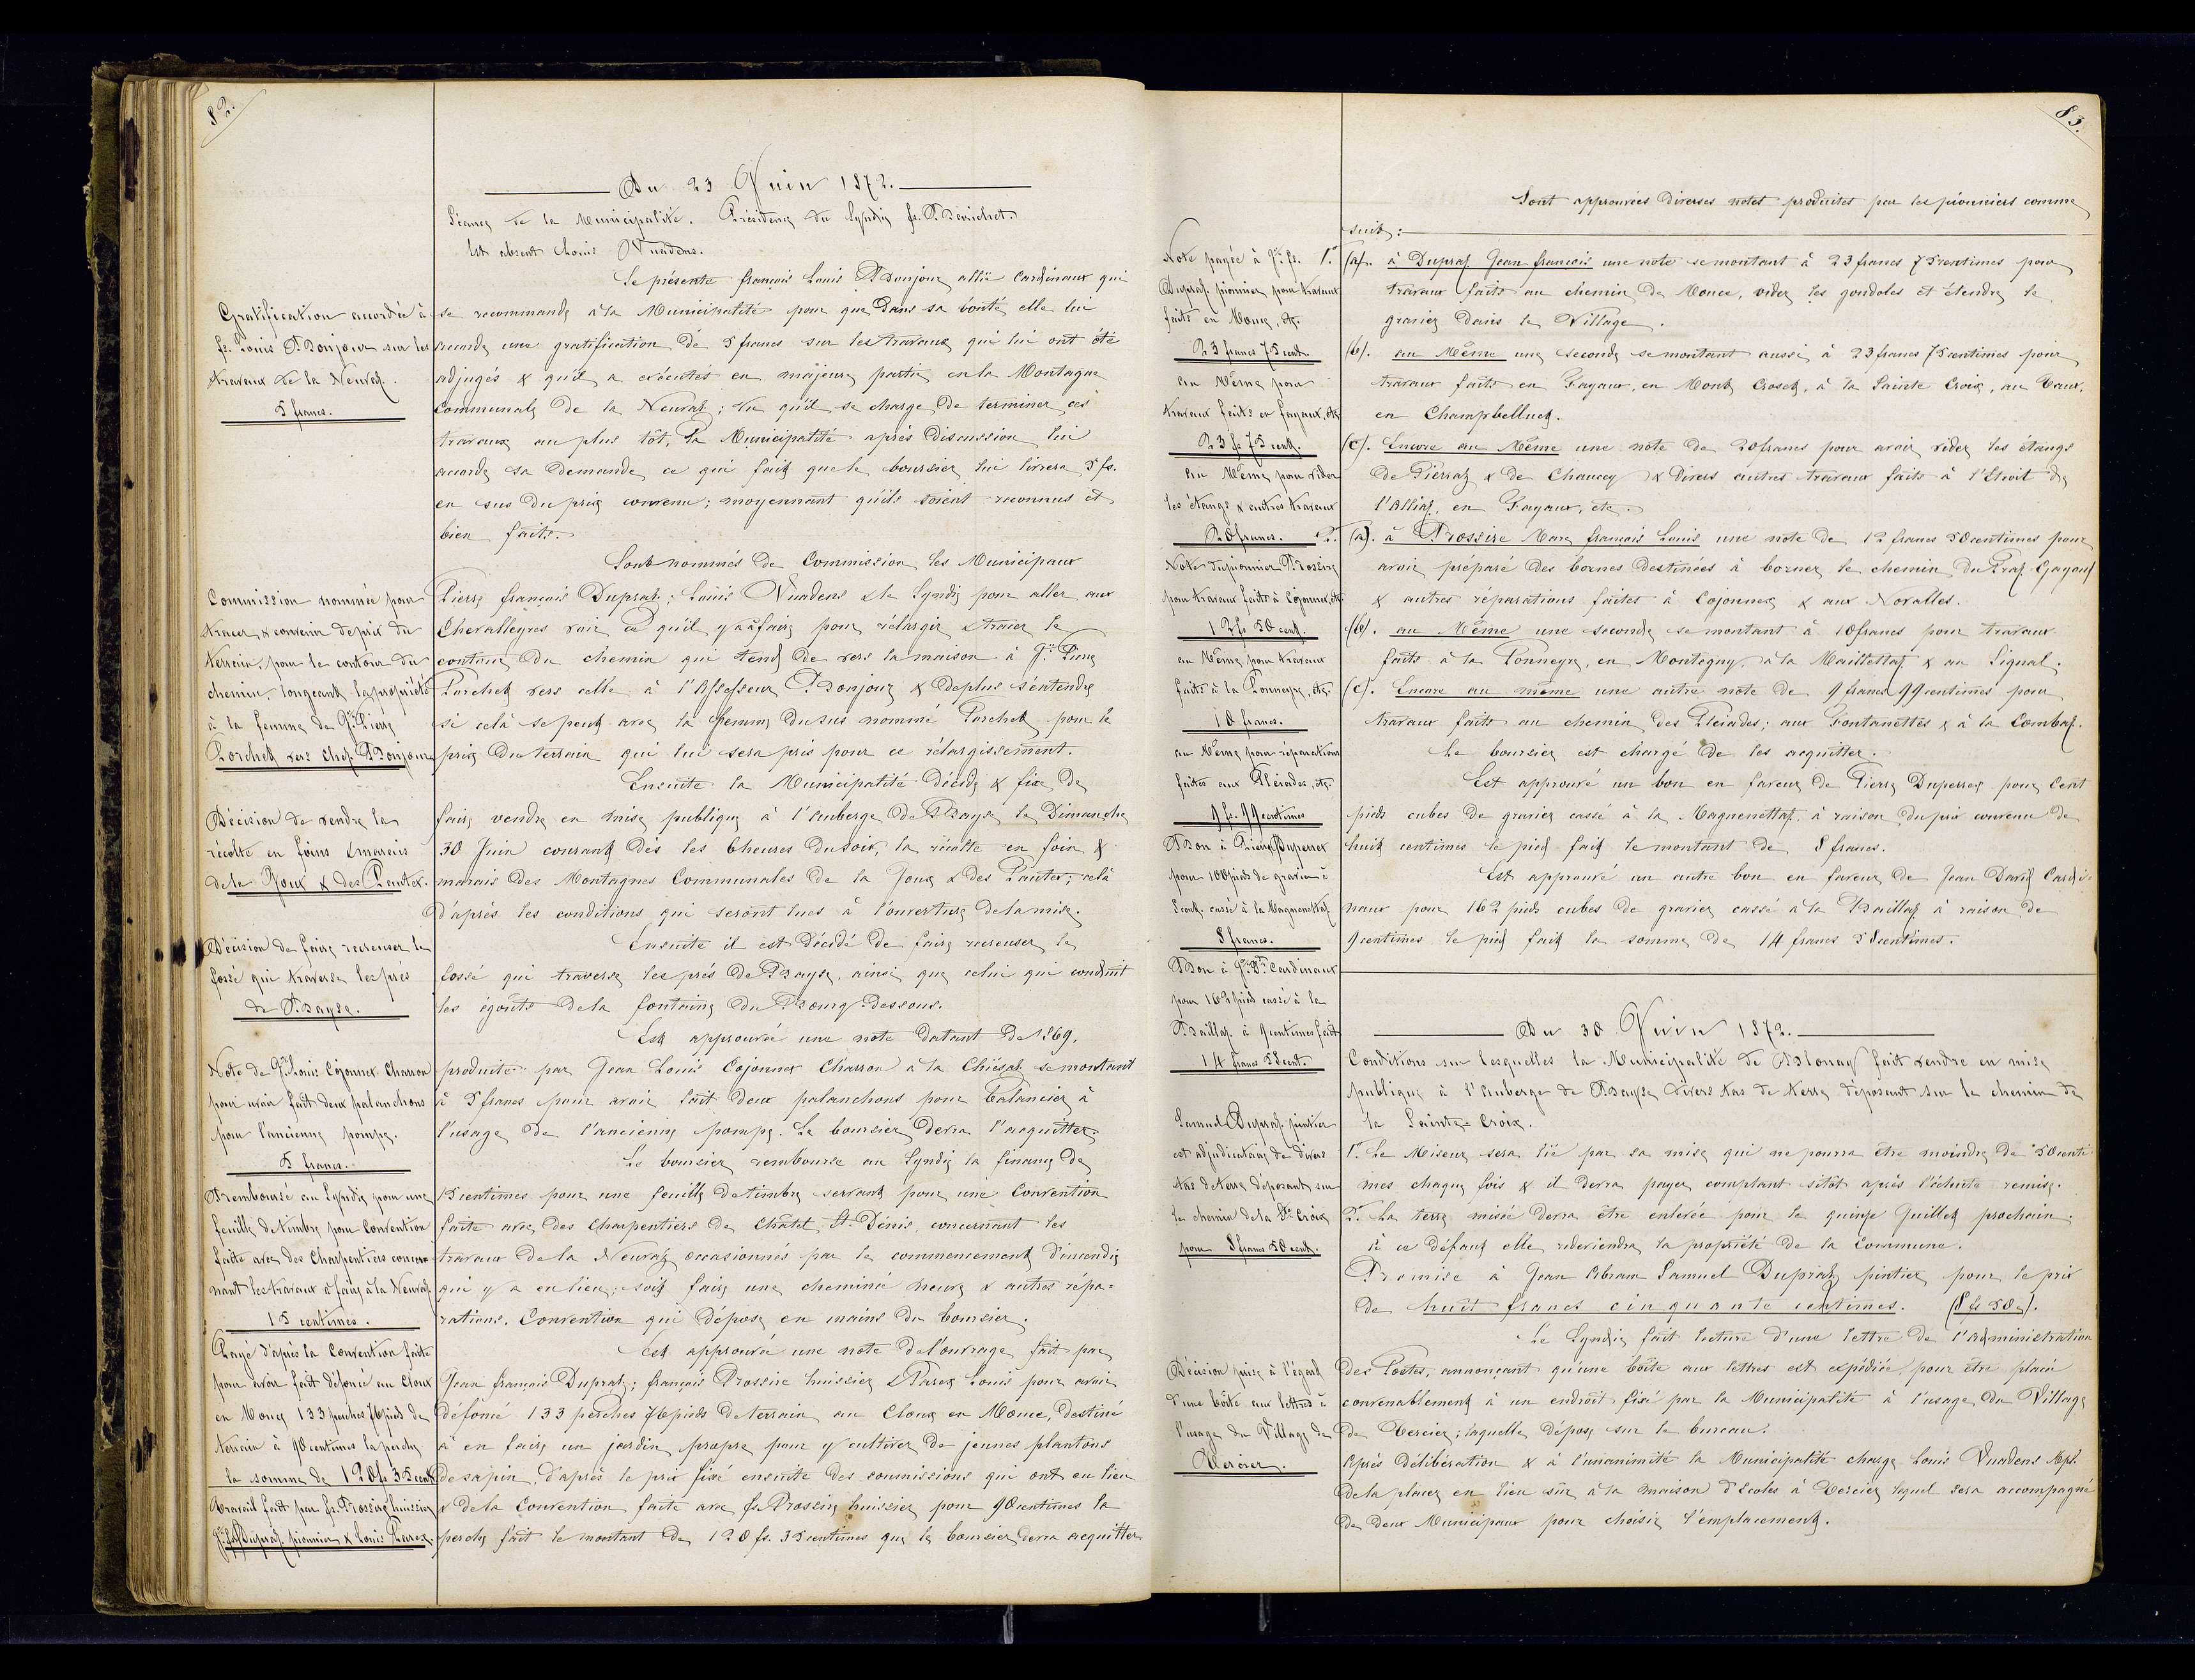 82.
Du 23 Juin 1872.
Séance de la Municipalité. Présidence du Syndic fs. Bérichet.
Est absent Louis Vuadens.
Se présente françois Louis Bonjour allié Cardinaux qui
Gratification accordée à
fs. Louis Bonjour sur les
travaux de la Neuvaz.
5 francs.
se recommande à la Municipalité pour que dans sa bonté elle lui
accorde une gratification de 5 francs sur les travaux qui lui ont été
adjugés & qu'il a exécutés en majeure partie en la Montagne
Communale de la Neuvaz; vu qu'il se charge de terminer ces
travaux au plus tôt, la Municipalité après discussion lui
accorde sa demande ce qui fait que le boursier lui livrera 5 fs.
en sus du prix convenu; moyennant qu'ils soient reconnus et
bien faits.
Sont nommés de Commission les Municipaux
Commission nommée pour
tracer & convenir de prix du
terrain, pour le contour du
chemin longeant la propriété
à la femme de Jn. Pierre
Porchet vers chez Bonjour
Pierre françois Dupraz; Louis Vuadens & le Syndic pour aller aux
Chevalleyres voir ce qu'il y a à faire pour rélargir & tracer le
contour du chemin qui tend de vers la maison à Jn. Pierre
Porchet vers celle à l'Assesseur Bonjour & de plus s'entendre
si celà se peut avec la femme du sus nommé Porchet pour le
prix du terrain qui lui sera pris pour ce rélargissement.
Ensuite la Municipalité décide & fixe de
Décision de vendre la
récolte en foins & marais
de la Joux & des Pautex.
faire vendre en mise publique à l'Auberge de Bayse le Dimanche
30 Juin courant dès les 6 heures du soir, la récolte en foin &
marais des Montagnes Communales de la Joux & des Pautex; celà
d'après les conditions qui seront lues à l'ouverture de la mise.
Ensuite il est décidé de faire recreuser le
Décision de faire recreuser le
fossé qui traverse les prés
de Bayse.
fossé qui traverse les prés de Bayse, ainsi que celui qui conduit
les égouts de la fontaine du Bourg-dessous.
Est approuvée une note datant de 1869,
Note de Jn. Louis Cojonnex Charron
pour avoir fait deux palanchons
pour l'ancienne pompe.
5 francs.
produite par Jean Louis Cojonnex Charron à la Chiésaz se montant
à 5 francs pour avoir fait deux palanchons pour balancier à
l'usage de l'ancienne pompe. Le boursier devra l'acquitter.
Le boursier rembourse au Syndic la finance de
Remboursé au Syndic pour une
feuille de timbre pour Convention
faite avec des Charpentiers concer-
nant les travaux à faire à la Neuvaz.
15 centimes.
15 centimes pour une feuille de timbre servant pour une Convention
faite avec des Charpentiers de Châtel St. Dénis, concernant les
travaux de la Neuvaz occasionnés par le commencement d'incendie
qui y a eu lieu; soit faire une cheminée neuve & autres répa=
rations. Convention qui dépose en mains du boursier.
Est approuvée une note de l'ouvrage fait par
Payé d'après la Convention faite
pour avoir fait défoncé au Cloux
en Mouce 133 perches 76 pieds de
terrain à 90 centimes la perche
la somme de 120 fs 35 cent
Travail fait par fs. Brossire huissier
Jn. fs. Dupraz pionnier & Louis Parex.
Jean françois Dupraz; françois Brossire huissier & Parex Louis pour avoir
défoncé 133 perches 76 pieds de terrain au Cloux en Mouce, destiné
à en faire un jardin propre pour y cultiver de jeunes plantons
de sapin, d'après le prix fixé ensuite des soumissions qui ont eu lieu
& de la Convention faite avec fs. Brossire huissier pour 90 centimes la
perche fait le montant de 120 fs. 35 centimes que le boursier devra acquitter.
83.
Sont approuvées diverses notes produites par les pionniers comme
suit:
Note payée à Jn. fs.
Dupraz pionnier pour travaux
faits en Mouce, etc.
23 francs 75 cent.
1° (a). à Dupraz Jean françois une note se montant à 23 francs 75 centimes pour
travaux faits au chemin de Mouce, vider les gondoles et étendre le
gravier dans le Village.
au Même pour
travaux faits en fayaux, etc
23 fs 75 cent.
(b). au Même une seconde se montant aussi à 23 francs 75 centimes pour
travaux faits en Fayaux, en Mont Croset, à la Sainte Croix, au Vaux,
en Champbelluet.
au Même pour vider
les étangs & autres travaux
20 francs.
(c). Encore au Même une note de 20 francs pour avoir vider les étangs
de Pierraz & de Chaucey & divers autres travaux faits à l'Etroit de
l'Alliaz, en Fayaux, etc.
Note du pionnier Brossire
pour travaux faits à Cojonnex, etc
12 fs 50 cent.
2° (a). à Brossire Marc françois Louis une note de 12 francs 50 centimes pour
avoir préparé des bornes destinées à borner le chemin du Praz Gayoux
& autres réparations faites à Cojonnex & aux Novalles.
au Même pour travaux
faits à la Ponneyre, etc.
10 francs.
(b). au Même une seconde se montant à 10 francs pour travaux
faits à la Ponneyre, en Montegny, à la Maillettaz & au Signal.
au Même pour réparations
faites aux Pléiades, etc.
9 fs. 99 centimes
(c). Encore au même une autre note de 9 francs 99 centimes pour
travaux faits au chemin des Pleiades; aux Fontanettes & à la Combaz.
Le boursier est chargé de les acquitter.
Est approuvé un bon en faveur de Pierre Duperrex pour Cent
Bon à Pierre Duperrex
pour 100 pieds de gravier à
8 cent. cassé à la Magnenettaz
8 francs.
pieds cubes de gravier cassé à la Magnenettaz, à raison du prix convenu de
huit centimes le pied fait le montant de 8 francs.
Est approuvé un autre bon en faveur de Jean David Cardi=
Bon à Jn. Dd. Cardinaux
pour 162 pieds cassé à la
Baillaz à 9 centimes fait
14 francs 58 cent.
naux pour 162 pieds cubes de gravier cassé à la Baillaz à raison de
9 centimes le pied fait la somme de 14 francs 58 centimes.
Du 30 Juin 1872.
Conditions sur lesquelles la Municipalité de Blonay fait vendre en mise
publique à l'Auberge de Bayse divers tas de terre déposant sur le chemin de
la Sainte-Croix.
Samuel Dupraz pintier
est adjudicataire de divers
tas de terre déposant sur
le chemin de la Ste Croix
pour 8 francs 50 cent.
1° Le Miseur sera lié par sa mise qui ne pourra être moindre de 50 centi-
mes chaque fois & il devra payer comptant sitôt après l'échute remise.
2° La terre misée devra être enlevée pour le quinze Juillet prochain;
à ce défaut elle redeviendra la propriété de la Commune.
Remise à Jean Abram Samuel Dupraz pintier pour le prix
de huit francs cinquante centimes. (8 fs 50 c).
Le Syndic fait lecture d'une lettre de l'Administration
Décision prise à l'égard
d'une boîte aux lettres à
l'usage du Village de
Tercier.
des Postes, annonçant qu'une boîte aux lettres est expédiée, pour être placée
convenablement à un endroit fixé par la Municipalité à l'usage du Village
de Tercier; laquelle dépose sur le bureau.
Après délibération & à l'unanimité la Municipalité charge Louis Vuadens Mpl.
de la placer en lieu sûr à la maison d'Ecoles à Tercier lequel sera accompagné
de deux Municipaux pour choisir l'emplacement.